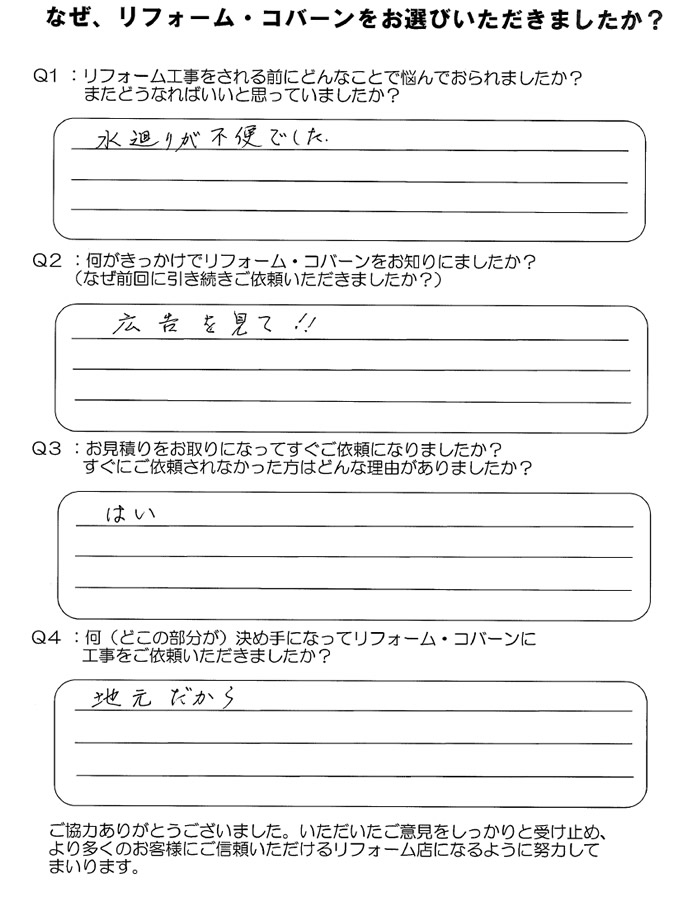 なぜ、リフォーム・コバーンをお選びいただきましたか？
Q1 ：リフォーム工事をされる前にどんなことで悩んでおられましたか？
またどうなればいいと思っていましたか？
水廻りが不便でした.
Q2 ：何がきっかけでリフォーム・コバーンをお知りにましたか？
（なぜ前回に引き続きご依頼いただきましたか？）
広告を見て!!
Q3 ：お見積りをお取りになってすぐご依頼になりましたか？
すぐにご依頼されなかった方はどんな理由がありましたか？
はい
Q4 ：何（どこの部分が）決め手になってリフォーム・コバーンに
工事をご依頼いただきましたか？
地元だから
ご協力ありがとうございました。いただいたご意見をしっかりと受け止め、
より多くのお客様にご信頼いただけるリフォーム店になるように努力して
まいります。